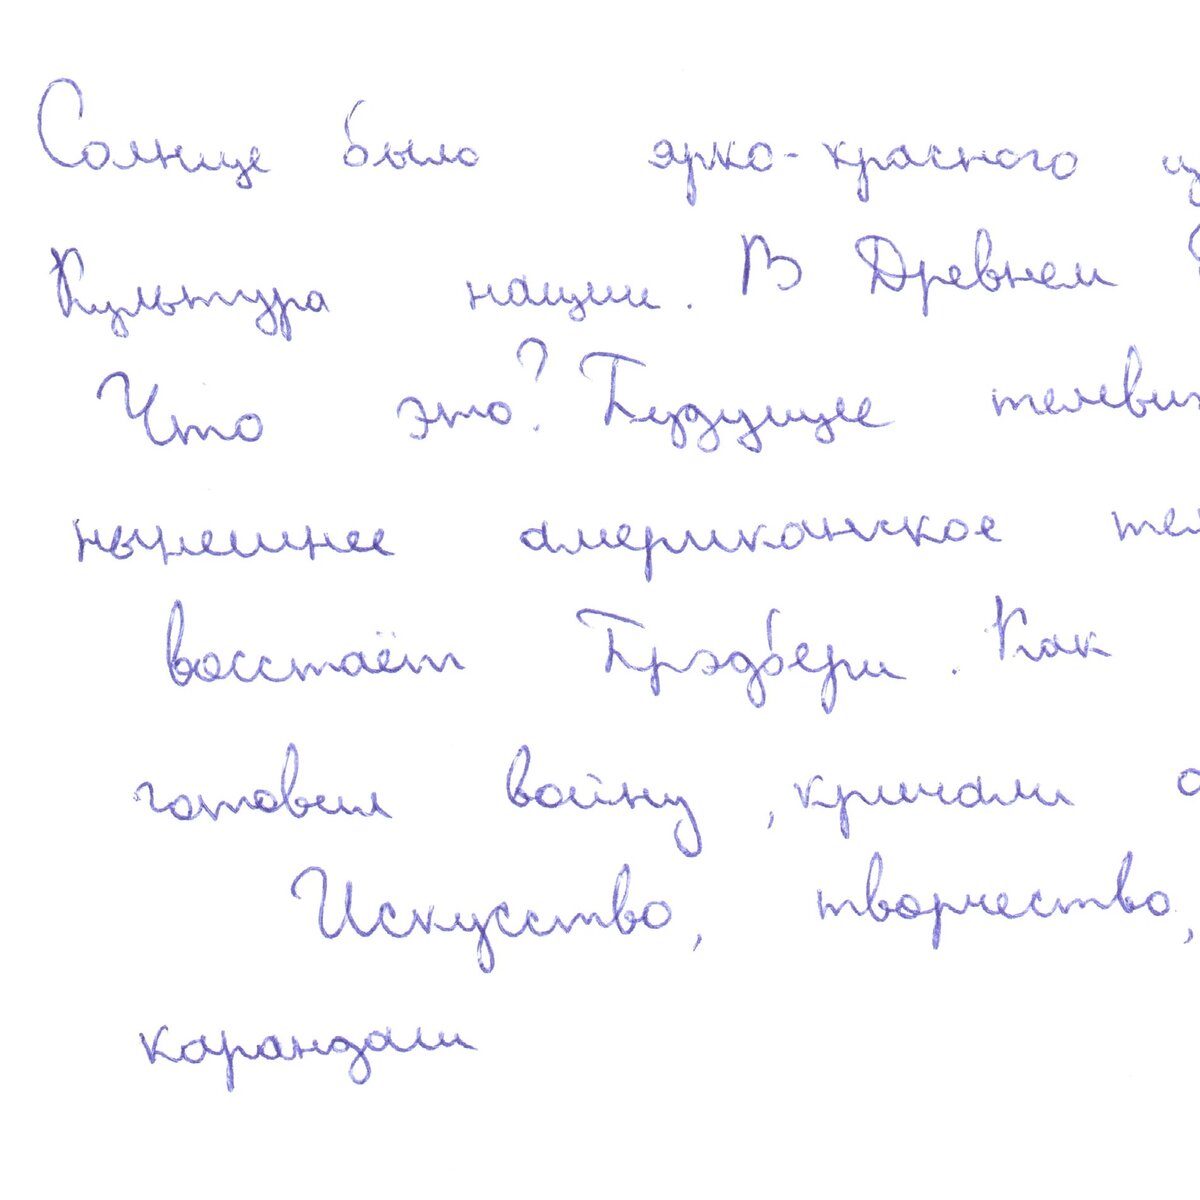 Солнце было ярко-красного ц
Культура нации. В Древнем
Что это? Будущее телеви
нынешнее американское тел
восстаёт Брэдбери. Как
готовил войну, кричали о
Искусство, творчество,
карандаш